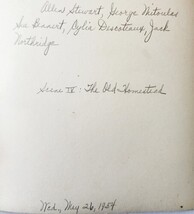 Allan Stewart, George Nitoulas
Sue Bennert, Dylia Descoteaux, Jack
Northridge
Scene IV: The Old Homestead
Wed, May 26, 1954